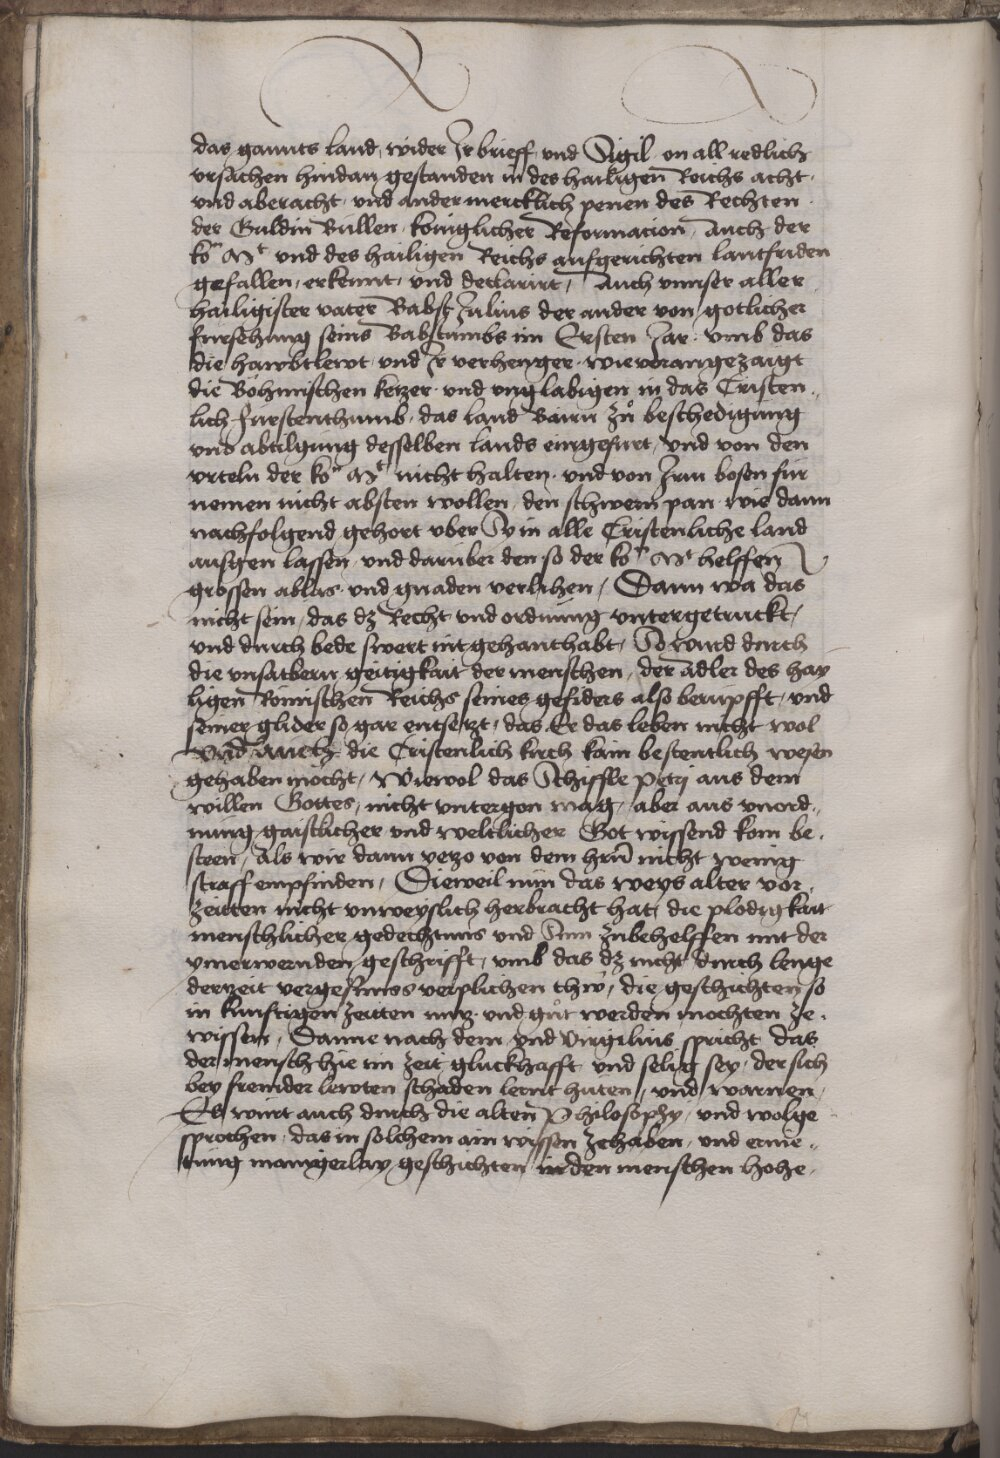 das gannts land, wider Ir brieff und Sigil on all redlich
ursachen hindan gestanden in des hailigen Reichs acht
und aberacht, und ander mercklich penen des Rechten
der Guldin Bullen, königlicher Reformation, Auch der
ko͂ Mt und des hailigen Reichs aufgerichten lantfriden
gefallen, erkennt, und declarirt, Auch unnser aller
hailigister vater Babst Julius der ander von gotlicher
fürsehung seins Babstumbs im Ersten Jar, umb das
die hawbtlewt und Ir verhenger, wie vorangezaigt
die Böhmischen ketzer und unglabigen in das Cristen„
lich fürstenthumb, das land Bairn zu beschedigung
und abtilgung desselben lands eingefürt, und von den
urteln der ko͂ Mt nicht halten, und von Irm bosen für
nemen nicht absten wollen, den schwern pan wie dann
nachfolgend gehort uber Sy in alle Cristenliche land
ausgen lassen, und darüber den so der ko͂ Mt helffen
grossen ablas und gnaden verlihen, Dann wa das
nicht sein, das dz Recht und ordnung untergetruckt,
und durch bede swert nit gehanthabt, So würd durch
die unsatbern geitigkait der menschen, der adler des hay
ligen Römischen Reichs seines gefiders also berupfft, und
seiner glider so gar entsetzt, das Er das leben nicht wol
und auch die Cristenlich kirch kain bestentlich wesen
gehaben möcht, Wiewol das Schiffle petri aus dem
willen Gottes, nicht untergon mag, aber aus unord„
nung gaistlicher und weltlicher Got wissend kom be„
steen, Als wir dann yetzo von dem hrn̄ nicht wenig
straff empfinden, Dieweil nun das weys alter vor
zeitten nicht unweyslich herbracht hat, die plodigkait
menschlicher gedechtnus und Sinn zubehelffen mit der
ymerwernden geschrifft, umb das dz nicht durch lenge
der zeit vergessnuss verplichen thw, die geschichten so
in kunftigen zeitten nutz und gut werden mochten ze„
wissen, Danne nach dem und Virgilius spricht das
der mensch hie im zeit gluckhafft und selig sey, der sich
bey fremder lewten schaden lernt huten, und warnen,
Es wirt auch durch die alten Philosophy, und wolge
sprochen, das in solchem ain wissen zehaben, und ernie„
tung manigerlay geschichten in den menschen hohe„